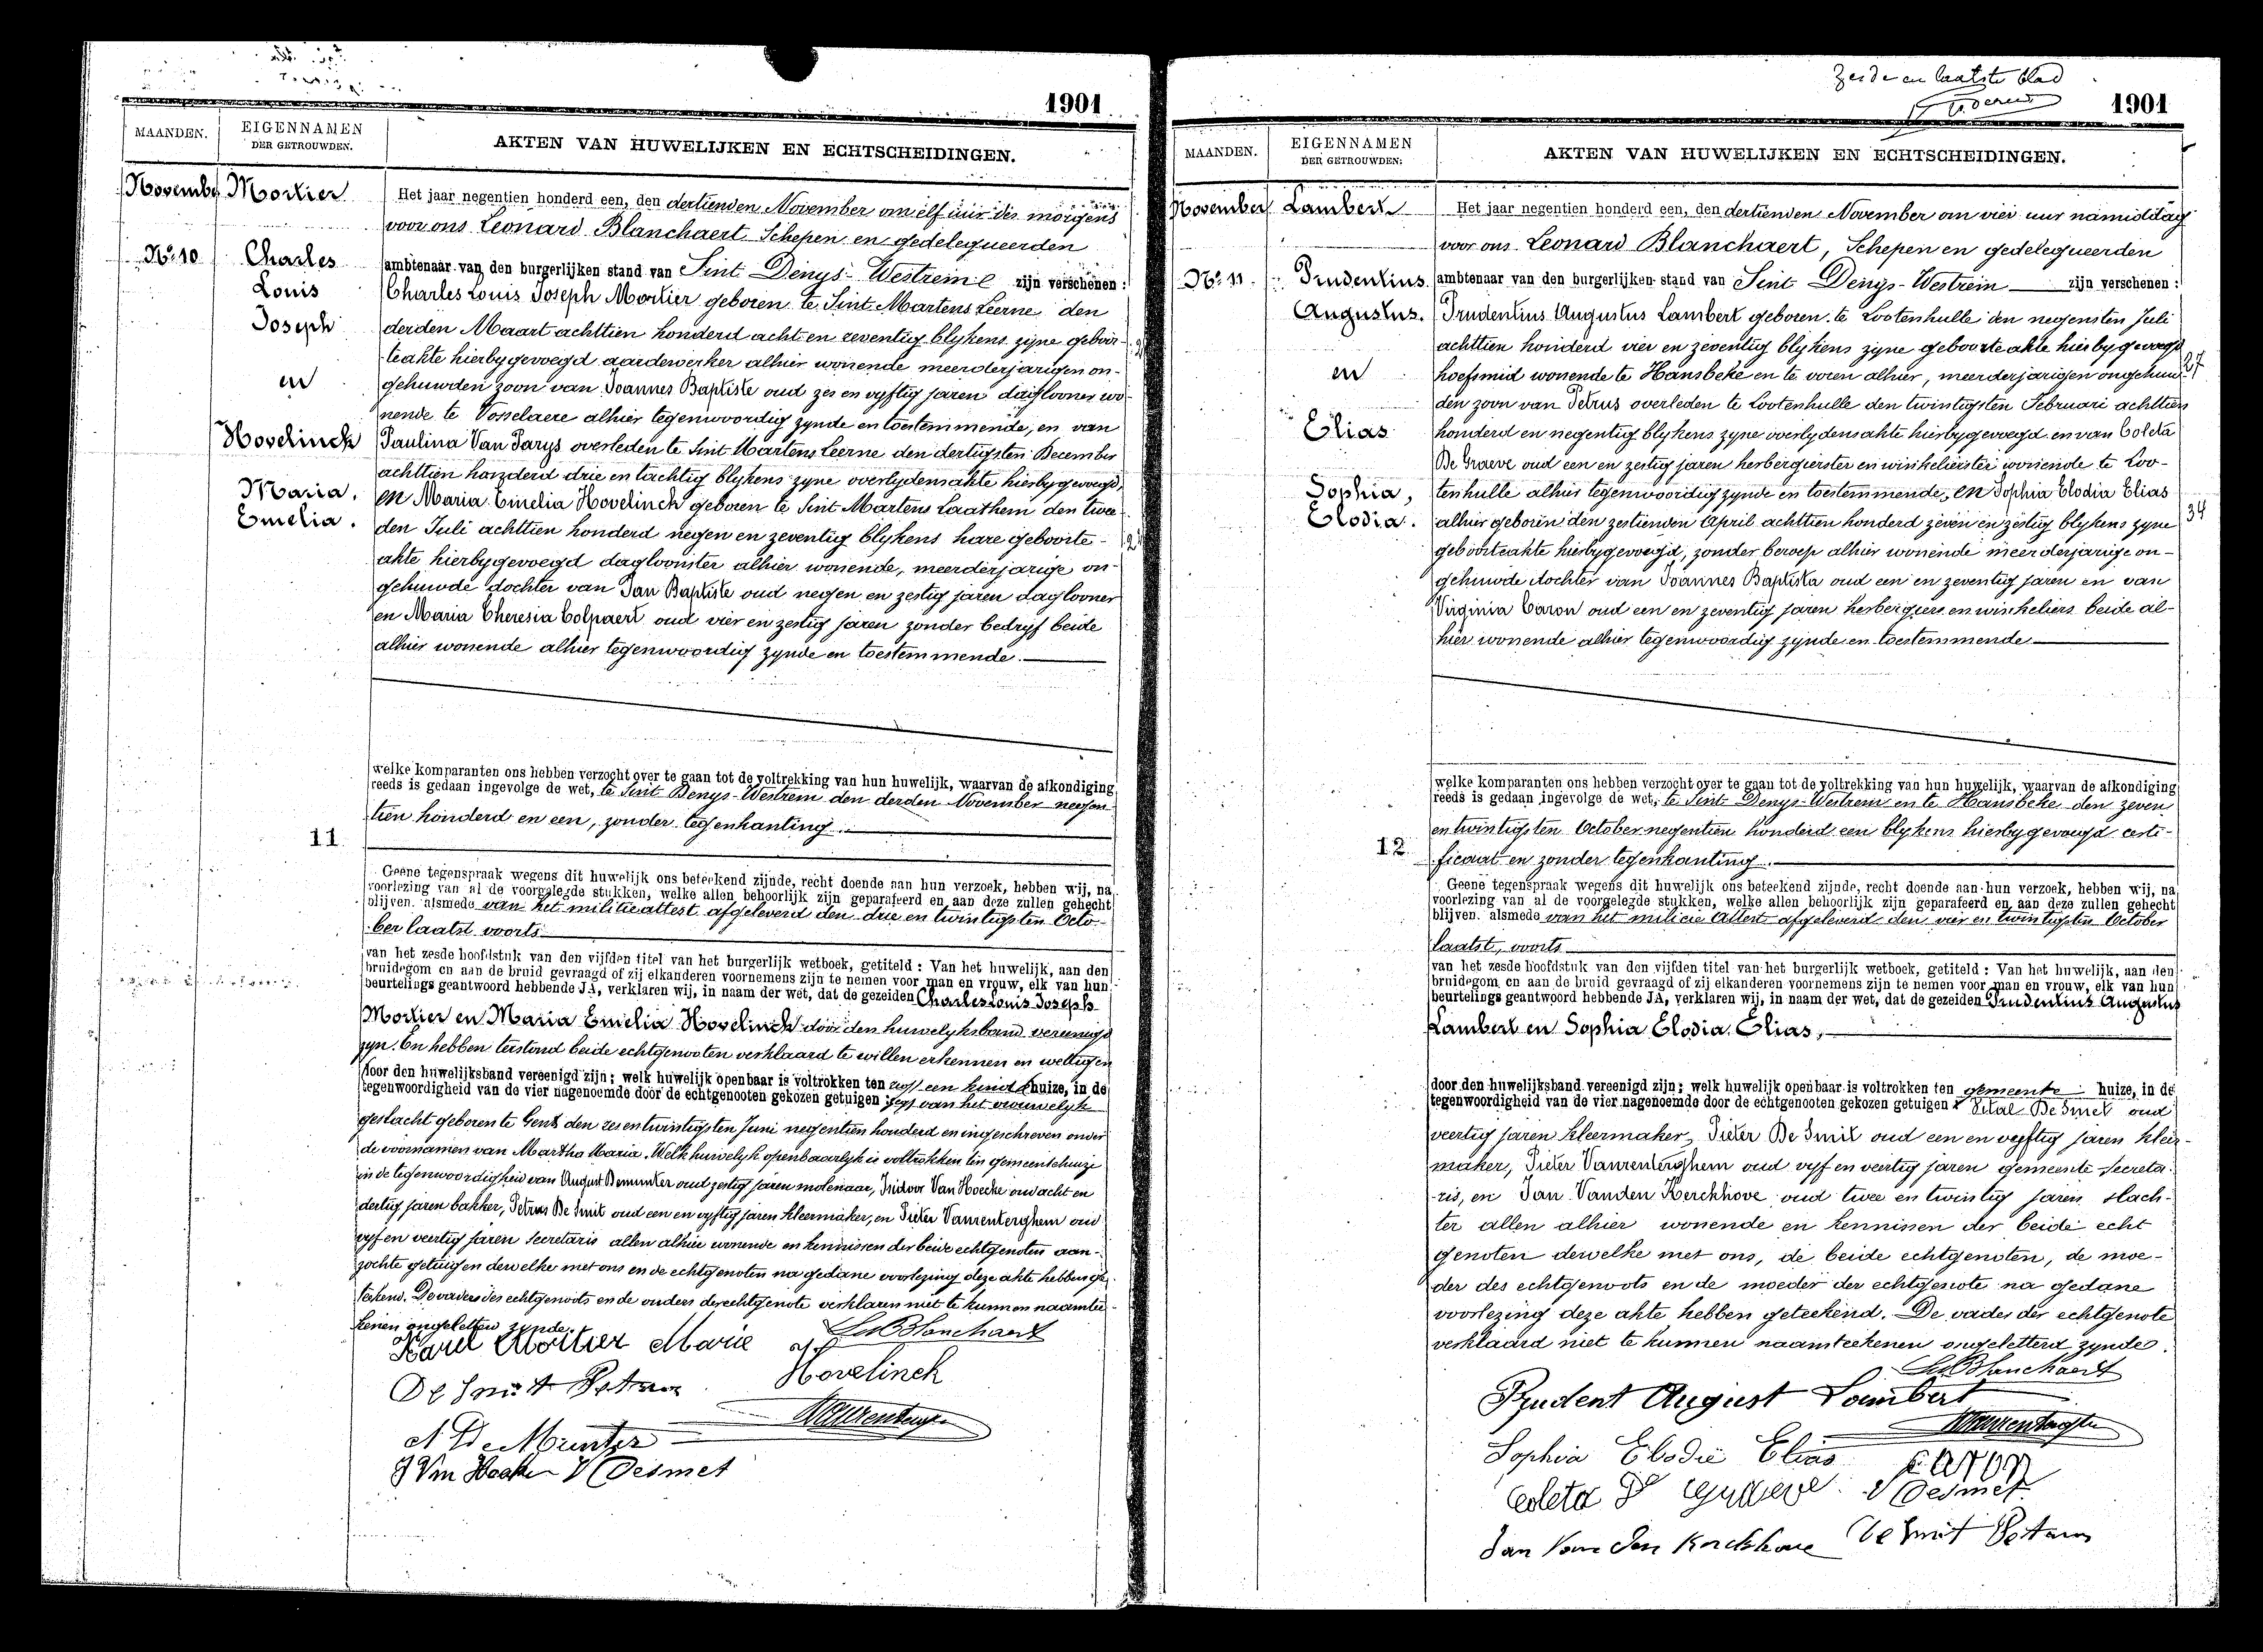 1901
MAANDEN.
EIGENNAMEN
DER GETROUWDEN.
AKTEN VAN HUWELIJKEN EN ECHTSCHEIDINGEN.
Novemb.
No. 10
Mortier
Charles
Louis
Joseph
en
Hovelinck
Maria,
Emelia.
Het jaar negentien honderd een, den dertienden November om elf uur des morgens
voor ons Leonard Blanchaert, Schepen en gedelegueerden
ambtenaar van den burgerlijken stand van Sint Denys-Westrem zijn verschenen:
Charles Louis Joseph Mortier geboren te Sint Martens Leerne den
derden Maart achttien honderd acht en zeventig blykens zyne geboor-
teakte hierbygevoegd aardewerker alhier wonende meerderjarigen on-
gehuwden zoon van Joannes Baptiste oud zes en vyftig jaren daglooner wo-
nende te Vosselaere alhier tegenwoordig zynde en toestemmende, en van
Paulina Van Parys overleden te Sint Martens Leerne den dertigsten December
achttien honderd drie en tachtig blykens zyne overlydensakte hierbygevoegd,
en Maria Emelia Hovelinck geboren te Sint Martens Laathem den twee
den Juli achttien honderd negen en zeventig blykens hare geboorte-
akte hierbygevoegd dagloonster alhier wonende, meerderjarige on-
gehuwde dochter van Jan Baptiste oud negen en zestig jaren daglooner
en Maria Theresia Colpaert oud vier en zestig jaren zonder bedryf beide
alhier wonende alhier tegenwoordig zynde en toestemmende.
welke komparanten ons hebben verzocht over te gaan tot de voltrekking van hun huwelijk, waarvan de afkondiging
reeds is gedaan ingevolge de wet, te Sint Denys-Westrem den derden November negen-
tien honderd en een, zonder tegenkanting.
11.
Geene tegenspraak wegens dit huwelijk ons beteekend zijnde, recht doende aan hun verzoek, hebben wij, na
voorlezing van al de voorgelegde stukken, welke allen behoorlijk zijn geparafeerd en aan deze zullen gehecht
blijven. alsmede van het militie attest afgeleverd den drie en twintigsten Octo-
ber laatst voorts
van het zesde hoofdstuk van den vijfden titel van het burgerlijk wetboek, getiteld: Van het huwelijk, aan den
bruidegom en aan de bruid gevraagd of zij elkanderen voornemens zijn te nemen voor man en vrouw, elk van hun
beurtelings geantwoord hebbende JA, verklaren wij, in naam der wet, dat de gezeiden Charles Louis Joseph
Mortier en Maria Emelia Hovelinck door den huwelyksband vereenigd
zyn. En hebben terstond beide echtgenooten verklaard te willen erkennen en wettigen
door den huwelijksband vereenigd zijn; welk huwelijk openbaar is voltrokken ten een kind huize, in de
tegenwoordigheid van de vier nagenoemde door de echtgenooten gekozen getuigen van het vrouwelyk
geslacht geboren te Gent den zesentwintigsten Juni negentien honderd en ingeschreven onder
de voornamen van Martha Maria. Welk huwelyk openbaarlyk is voltrokken ten gemeentehuize
in de tegenwoordigheid van August Demunter oud zestig jaren molenaar, Isidoor Van Hoecke oud acht en
dertig jaren bakker, Petrus De Smit oud een en vyftig jaren kleermaker, en Pieter Vanrenterghem oud
vyf en veertig jaren secretaris allen alhier wonende en kennissen der beide echtgenoten aan-
zochte getuigen dewelke met ons en de echtgenoten na gedane voorlezing deze akte hebben ge-
teekend. De vader des echtgenoots en de ouders der echtgenote verklaren niet te kunnen naamtee-
kenen ongeletterd zynde.
Karel Mortier Marie
Ls Blanchaert
Hovelinck
De Smit Petrus
Vanrenterghem
A De Munter
I Van Hoecke V Desmet
Zesde en laatste blad
1901
MAANDEN.
EIGENNAMEN
DER GETROUWDEN:
AKTEN VAN HUWELIJKEN EN ECHTSCHEIDINGEN.
November
No. 11.
Lambert
Prudentius
Augustus.
en
Elias
Sophia,
Elodia.
Het jaar negentien honderd een, den dertienden November om vier uur namiddag
voor ons Leonard Blanchaert, Schepen en gedelegueerden
ambtenaar van den burgerlijken stand van Sint Denys-Westrem zijn verschenen:
Prudentius Augustus Lambert geboren te Lootenhulle den negensten Juli
achttien honderd vier en zeventig blykens zyne geboorteakte hierbygevoegd
hoefsmid wonende te Hansbeke en te voren alhier, meerderjarigen ongehuw-
27
den zoon van Petrus overleden te Lootenhulle den twintigsten Februari achttien
honderd en negentig blykens zyne overlydensakte hierbygevoegd en van Coleta
De Graeve oud een en zestig jaren herbergierster en winkelierster wonende te Loo-
tenhulle alhier tegenwoordig zynde en toestemmende, en Sophia Elodia Elias
alhier geboren den zestienden April achttien honderd zeven en zestig blykens zyne
34
geboorteakte hierbygevoegd, zonder beroep alhier wonende meerderjarige on-
gehuwde dochter van Joannes Baptista oud een en zeventig jaren en van
Virginia Caron oud een en zeventig jaren herbergiers en winkeliers beide al-
hier wonende alhier tegenwoordig zynde en toestemmende
welke komparanten ons hebben verzocht over te gaan tot de voltrekking van hun huwelijk, waarvan de afkondiging
reeds is gedaan ingevolge de wet, te Sint Denys-Westrem en te Hansbeke den zeven
en twintigsten October negentien honderd een blykens hierbygevoegd certi-
12.
ficaat en zonder tegenkanting.
Geene tegenspraak wegens dit huwelijk ons beteekend zijnde, recht doende aan hun verzoek, hebben wij, na
voorlezing van al de voorgelegde stukken, welke allen behoorlijk zijn geparafeerd en aan deze zullen gehecht
blijven. alsmede van het milicie attest afgeleverd den vier en twintigsten October
laatst, voorts
van het zesde hoofdstuk van den vijfden titel van het burgerlijk wetboek, getiteld: Van het huwelijk, aan den
bruidegom en aan de bruid gevraagd of zij elkanderen voornemens zijn te nemen voor man en vrouw, elk van hun
beurtelings geantwoord hebbende JA, verklaren wij, in naam der wet, dat de gezeiden Prudentius Augustus
Lambert en Sophia Elodia Elias,
door den huwelijksband vereenigd zijn; welk huwelijk openbaar is voltrokken ten gemeente huize, in de
tegenwoordigheid van de vier nagenoemde door de echtgenooten gekozen getuigen Vital De Smet oud
veertig jaren kleermaker, Pieter De Smit oud een en vyftig jaren kleer-
maker, Pieter Vanrenterghem oud vyf en veertig jaren gemeente secreta-
ris, en Jan Vanden Kerckhove oud twee en twintig jaren slach-
ter allen alhier wonende en kennissen der beide echt
genoten dewelke met ons, de beide echtgenoten, de moe-
der des echtgenoots en de moeder der echtgenote na gedane
voorlezing deze akte hebben geteekend. De vader der echtgenote
verklaard niet te kunnen naamteekenen ongeletterd zynde.
Ls Blanchaert
Prudent August Lambert
Vanrenterghem
Sophia Elodie Elias
Coleta De
V Desmet
Jan Van den Kerckhove De Smit Petrus